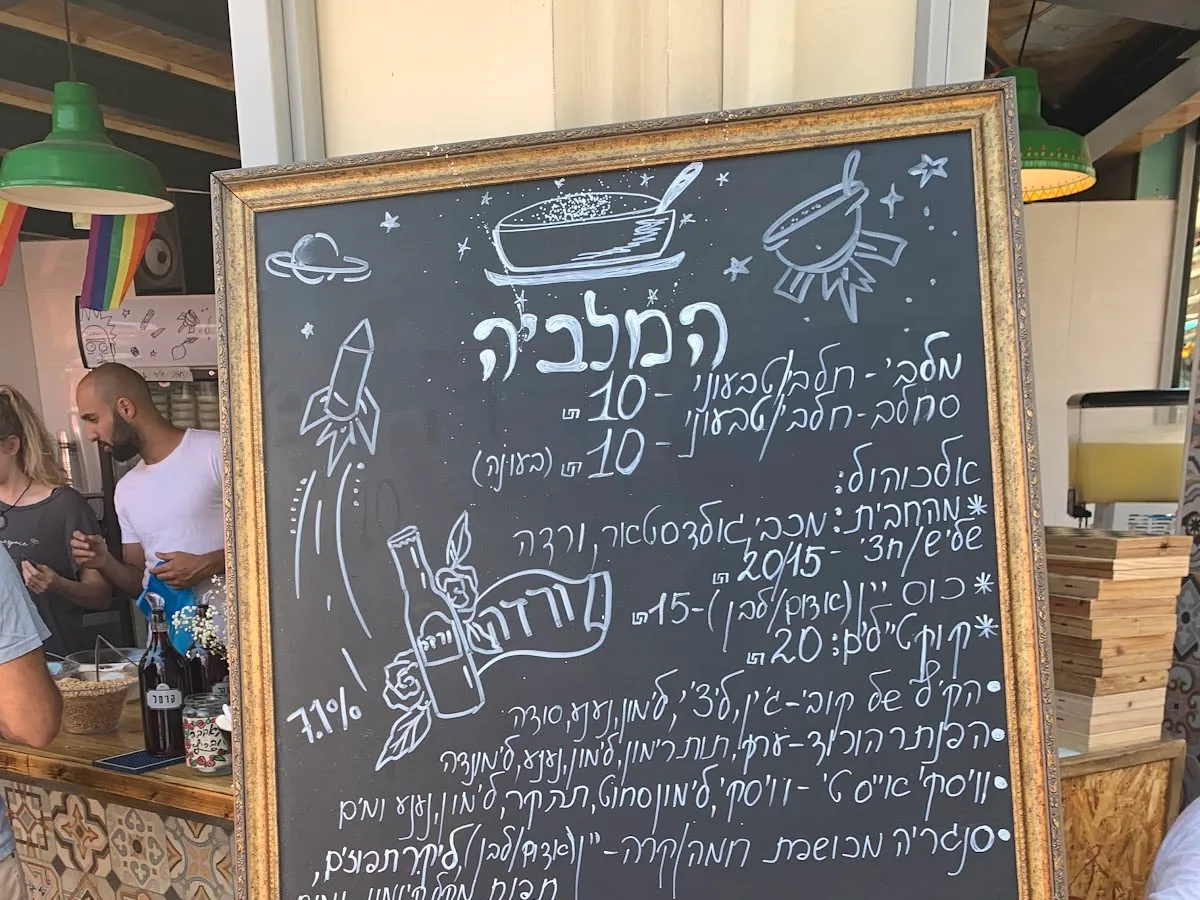 המלביה
מלבי - חלבי/טבעוני - 10 ₪
סחלב - חלבי/טבעוני - 10 ₪ (בעונה)
אלכוהול:
*מהחבית: מכבי, גולדסטאר, ורדה
שליש/חצי - 20/15 ₪
*כוס יין (אדום/לבן) - 15 ₪
*קוקטיילים: 20 ₪
ורדה
ורדה
7.1%
•הק״ל של קובי - ג׳ין, ליצ׳י, לימון, נענע, סודה
•הפנתר הורוד - ערק, תות רימון, לימון, נענע, לימונדה
•וויסקי אייס טי - וויסקי, לימון סחוט, תה קר, לימון, נענע ומים
•סנגריה מכושפת חמה/קרה - יין (אדום/לבן), ליקר תפוזים,
תפוח